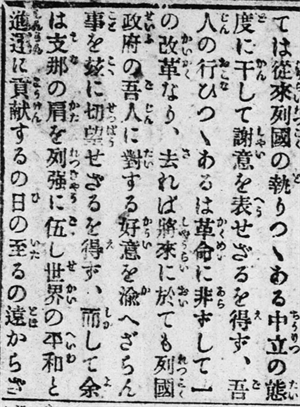 ては從來列國の執りつゝある中立の態
度に干して謝意を表せざるを得ず、吾
人の行ひつゝあるは革命に非ずして一
の改革なり、去れば將來に於ても列國
政府の吾人に對する好意を渝へざらん
事を玆に切望せざるを得ず、而して余
は支那の肩を列强に伍し世界の平和と
進運に貢献するの日の至るの遠からざ